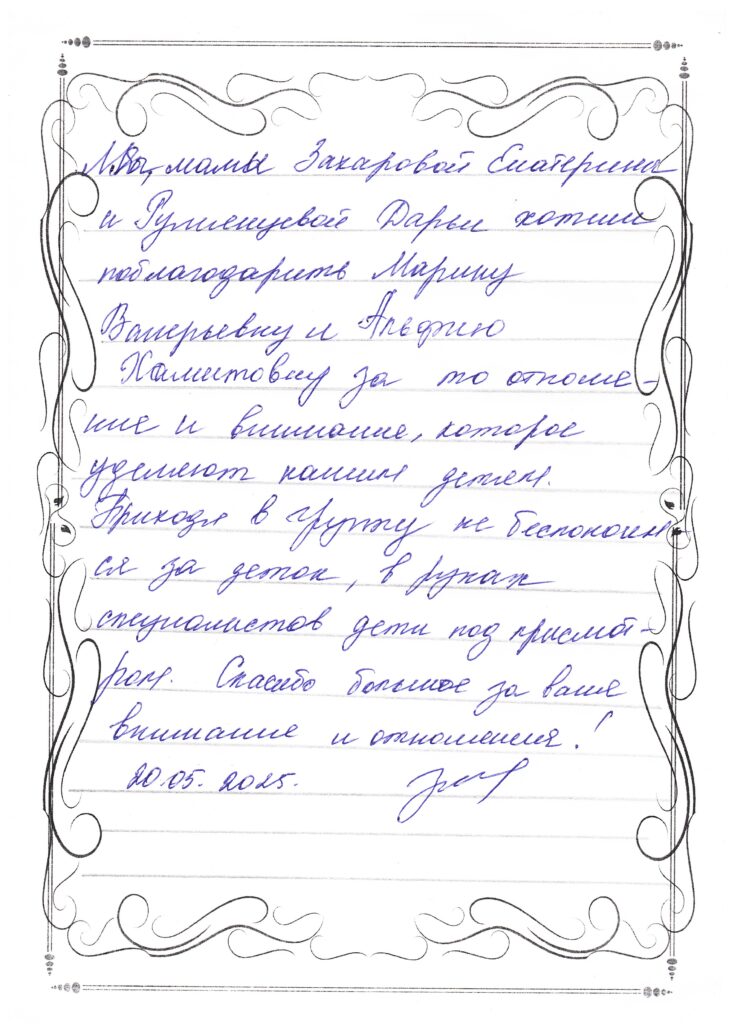 Мы, мамы Захаровой Екатерины
и Румянцевой Дарьи хотим
поблагодарить Марину
Валерьевну и Альфию
Хамитовну за то отноше-
ние и внимание, которое
уделяют нашим детям.
Приходя в группу не беспокоим-
ся за деток, в руках
специалистов дети под присмот-
ром. Спасибо большое за ваше
внимание и отношения!
20.05.2025.